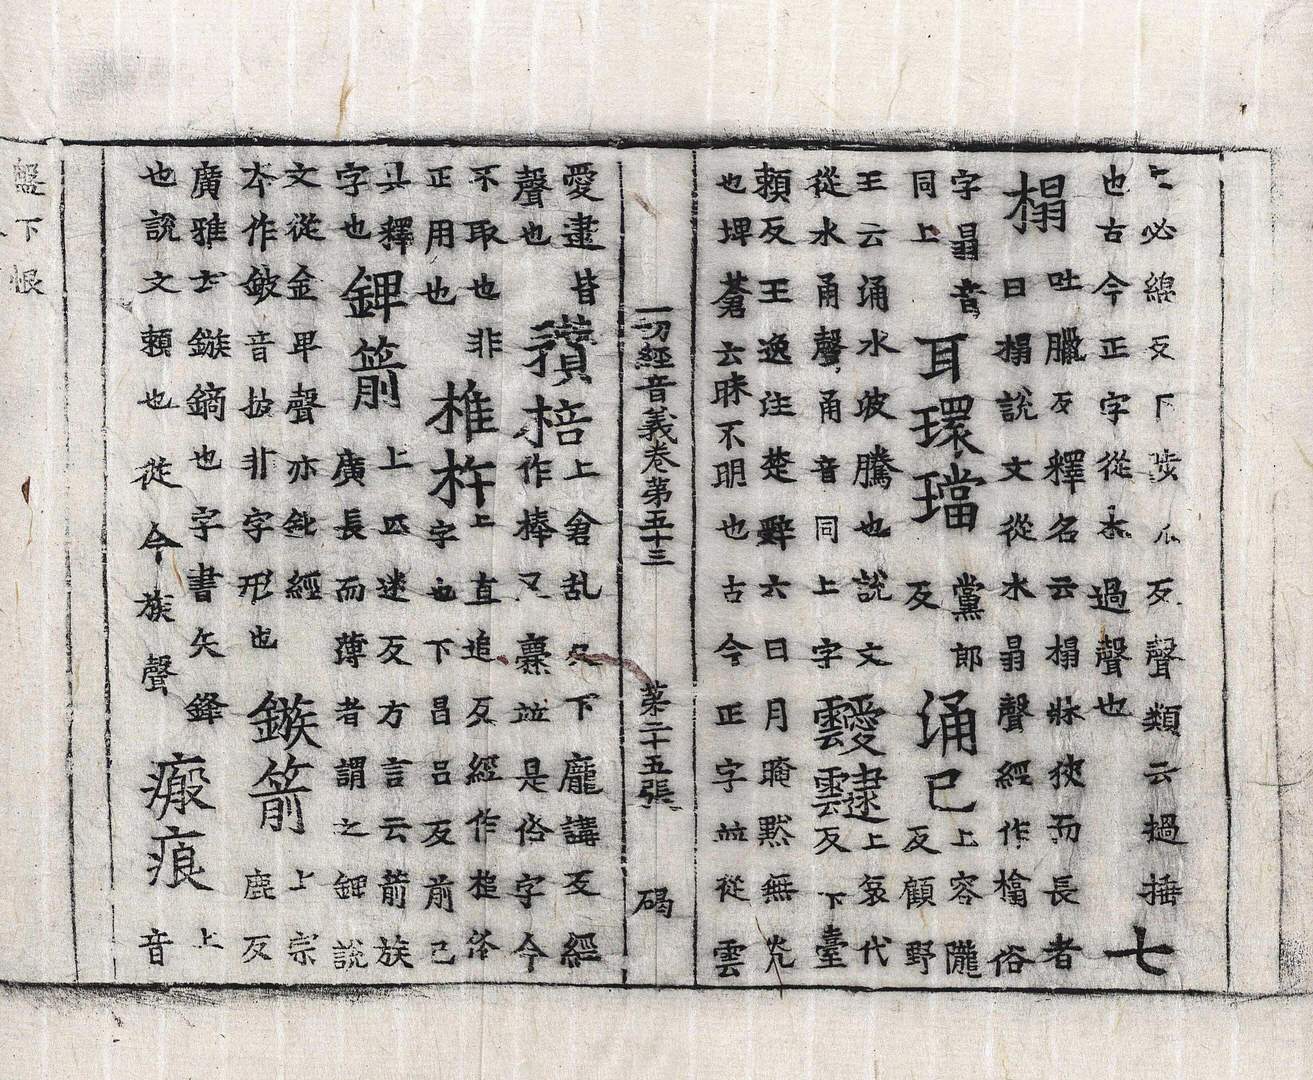 上必綿反下陟瓜反聲類云檛捶
也古今正字從木過聲也 七
榻 吐臘反釋名云榻牀狹而長者
曰榻說文從木𦐇聲經作㯓俗
字𦐇音
同上 耳環璫 黨郎
反 涌已 上容隴
反顧野
王云涌水波騰也說文
從水甬聲甬音同上字 靉靆 上哀代
反下臺
賴反王逸注楚辭云日月晻黮無光
也埤蒼云眛不明也古今正字並從雲
一切經音義卷第五十三 第二十五張 碣
愛逮皆
聲也 穳棓 上倉乱反下龐講反經
作棒又並是俗字今
不取也非
正用也 椎杵 上直追反經作槌俗
字也下昌呂反前已
具釋
字也 鉀箭 上匹迷反方言云箭族
廣長而薄者謂之鉀說
文從金甲聲亦鈚經
本作鈹音披非字形也 鏃箭 上宗
鹿反
廣雅云鏃鏑也字書矢鋒
也說文賴也從今族聲 瘢痕 上
音
盤下恨